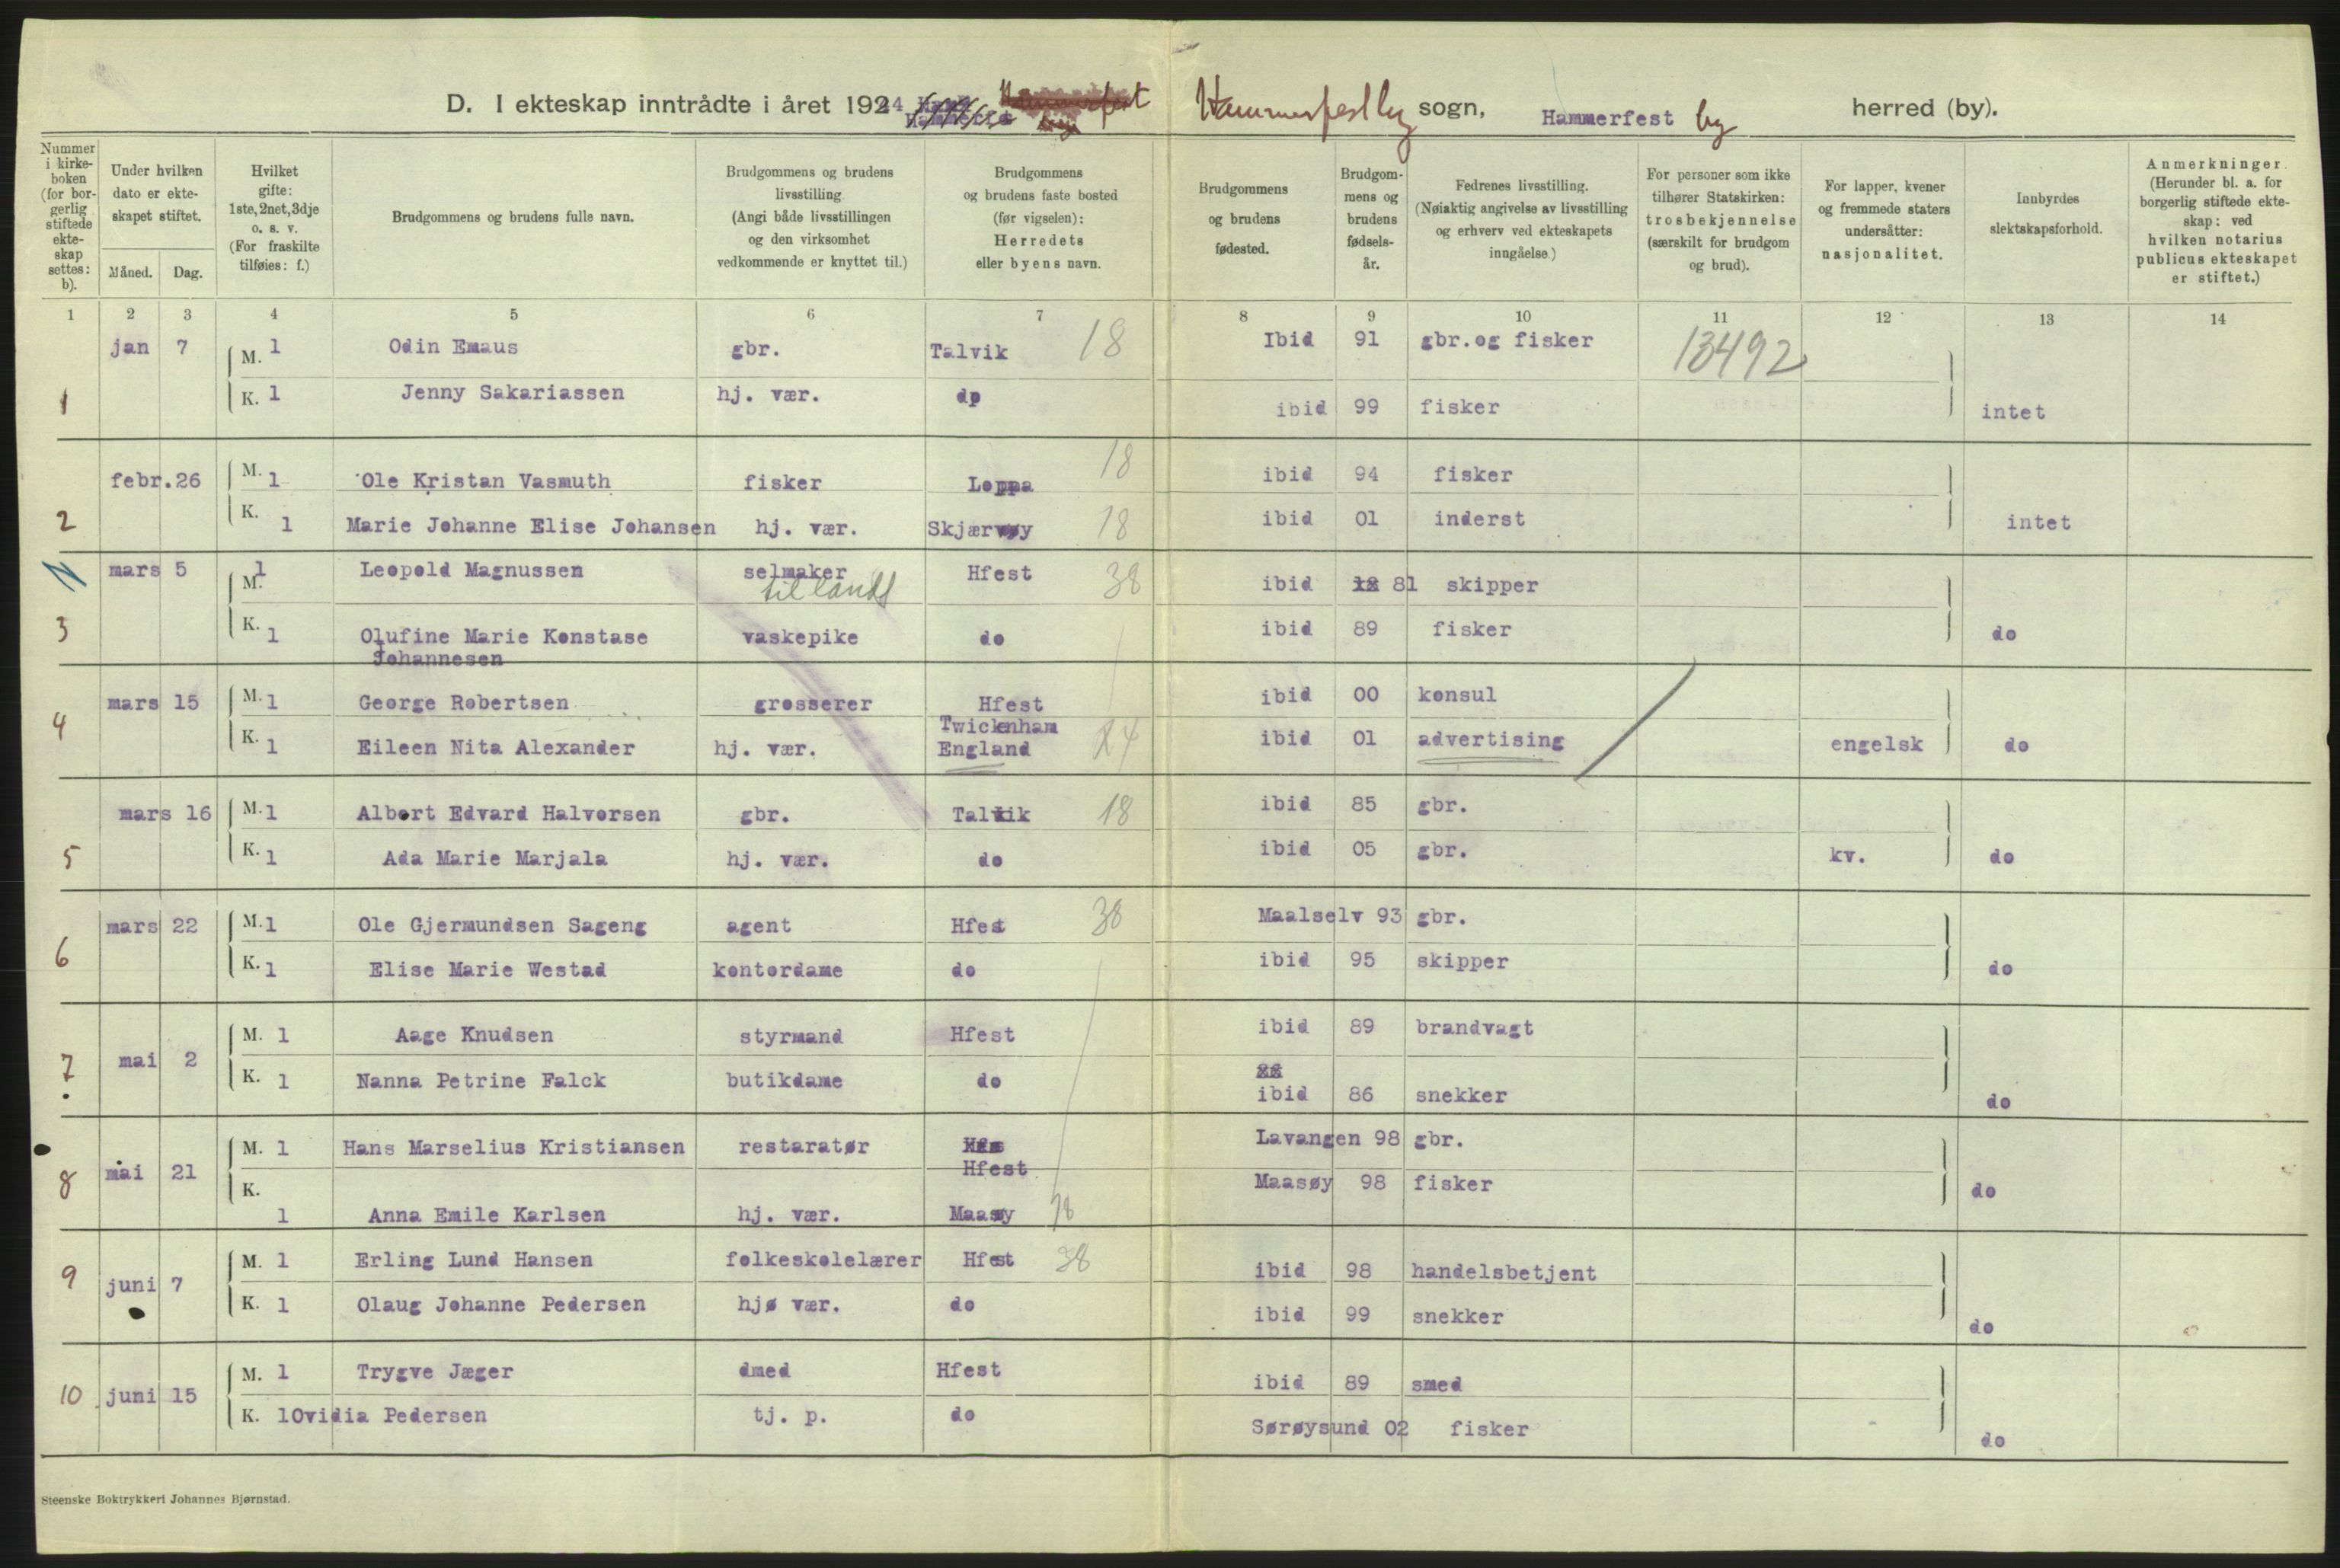 D. I ekteskap inntrådte i året 1924 Hammerfest by sogn, Hammerfest by herred (by).
Nummer i kirkeboken (for borgerlig stiftede ekteskap settes: b).
Under hvilken dato er ekteskapet stiftet.
Måned. Dag.
Hvilket gifte: 1ste, 2net, 3dje o. s. v. (For fraskilte tilføies: f.)
Brudgommens og brudens fulle navn.
Brudgommens og brudens livsstilling (Angi både livsstillingen og den virksomhet vedkommende er knyttet til.)
Brudgommens og brudens faste bosted (før vigselen): Herredets eller byens navn.
Brudgommens og brudens fødested.
Brudgommens og brudens fødselsår.
Fedrenes livsstilling. (Nøiaktig angivelse av livsstilling og erhverv ved ekteskapets inngåelse.)
For personer som ikke tilhører Statskirken: trosbekjennelse (særskilt for brudgom og brud).
For lapper, kvener og fremmede staters undersåtter: nasjonalitet.
Innbyrdes slektskapsforhold.
Anmerkninger. (Herunder bl. a. for borgerlig stiftede ekteskap: ved hvilken notarius publicus ekteskapet er stiftet.)
1 2 3 4 5 6 7 8 9 10 11 12 13 14
jan 7 M. 1 Odin Emaus gbr. Talvik 18 Ibid 91 gbr. og fisker 13492
1 K. 1 Jenny Sakariassen hj. vær. do ibid 99 fisker intet
febr. 26 M. 1 Ole Kristan Vasmuth fisker Loppa 18 ibid 94 fisker
2 K. 1 Marie Johanne Elise Johansen hj. vær. Skjærvøy 18 ibid 01 inderst intet
mars 5 M. 1 Leopold Magnussen selmaker Hfest 38 ibid 81 skipper
til lands
3 K. 1 Olufine Marie Konstase vaskepike do ibid 89 fisker do
Johannesen
4 mars 15 M. 1 George Robertsen grosserer Hfest ibid 00 konsul
Twickenham
K. 1 Eileen Nita Alexander hj. vær. England 24 ibid 01 advertising engelsk do
mars 16 M. 1 Albert Edvard Halvorsen gbr. Talvik 18 ibid 85 gbr.
5 K. 1 Ada Marie Marjala hj. vær. do ibid 05 gbr. kv. do
mars 22 M. 1 Ole Gjermundsen Sageng agent Hfest 38 Maalselv 93 gbr.
6 K. 1 Elise Marie Westad kontordame do ibid 95 skipper do
M. 1 Aage Knudsen styrmand Hfest ibid 89 brandvagt
7 mai 2 K. 1 Nanna Petrine Falck butikdame do ibid 86 snekker do
M. 1 Hans Marselius Kristiansen restaratør Hfest Lavangen 98 gbr.
8 mai 21 K. 1 Anna Emile Karlsen hj. vær. Maasøy 18 Maasøy 98 fisker do
9 juni 7 M. 1 Erling Lund Hansen folkeskolelærer Hfest 38 ibid 98 handelsbetjent
K. 1 Olaug Johanne Pedersen hjø vær. do ibid 99 snekker do
10 juni 15 M. 1 Trygve Jæger dmed Hfest ibid 89 smed
K. 1 Ovidia Pedersen tj. p. do Sørøysund 02 fisker do
Steenske Boktrykkeri Johannes Bjørnstad.